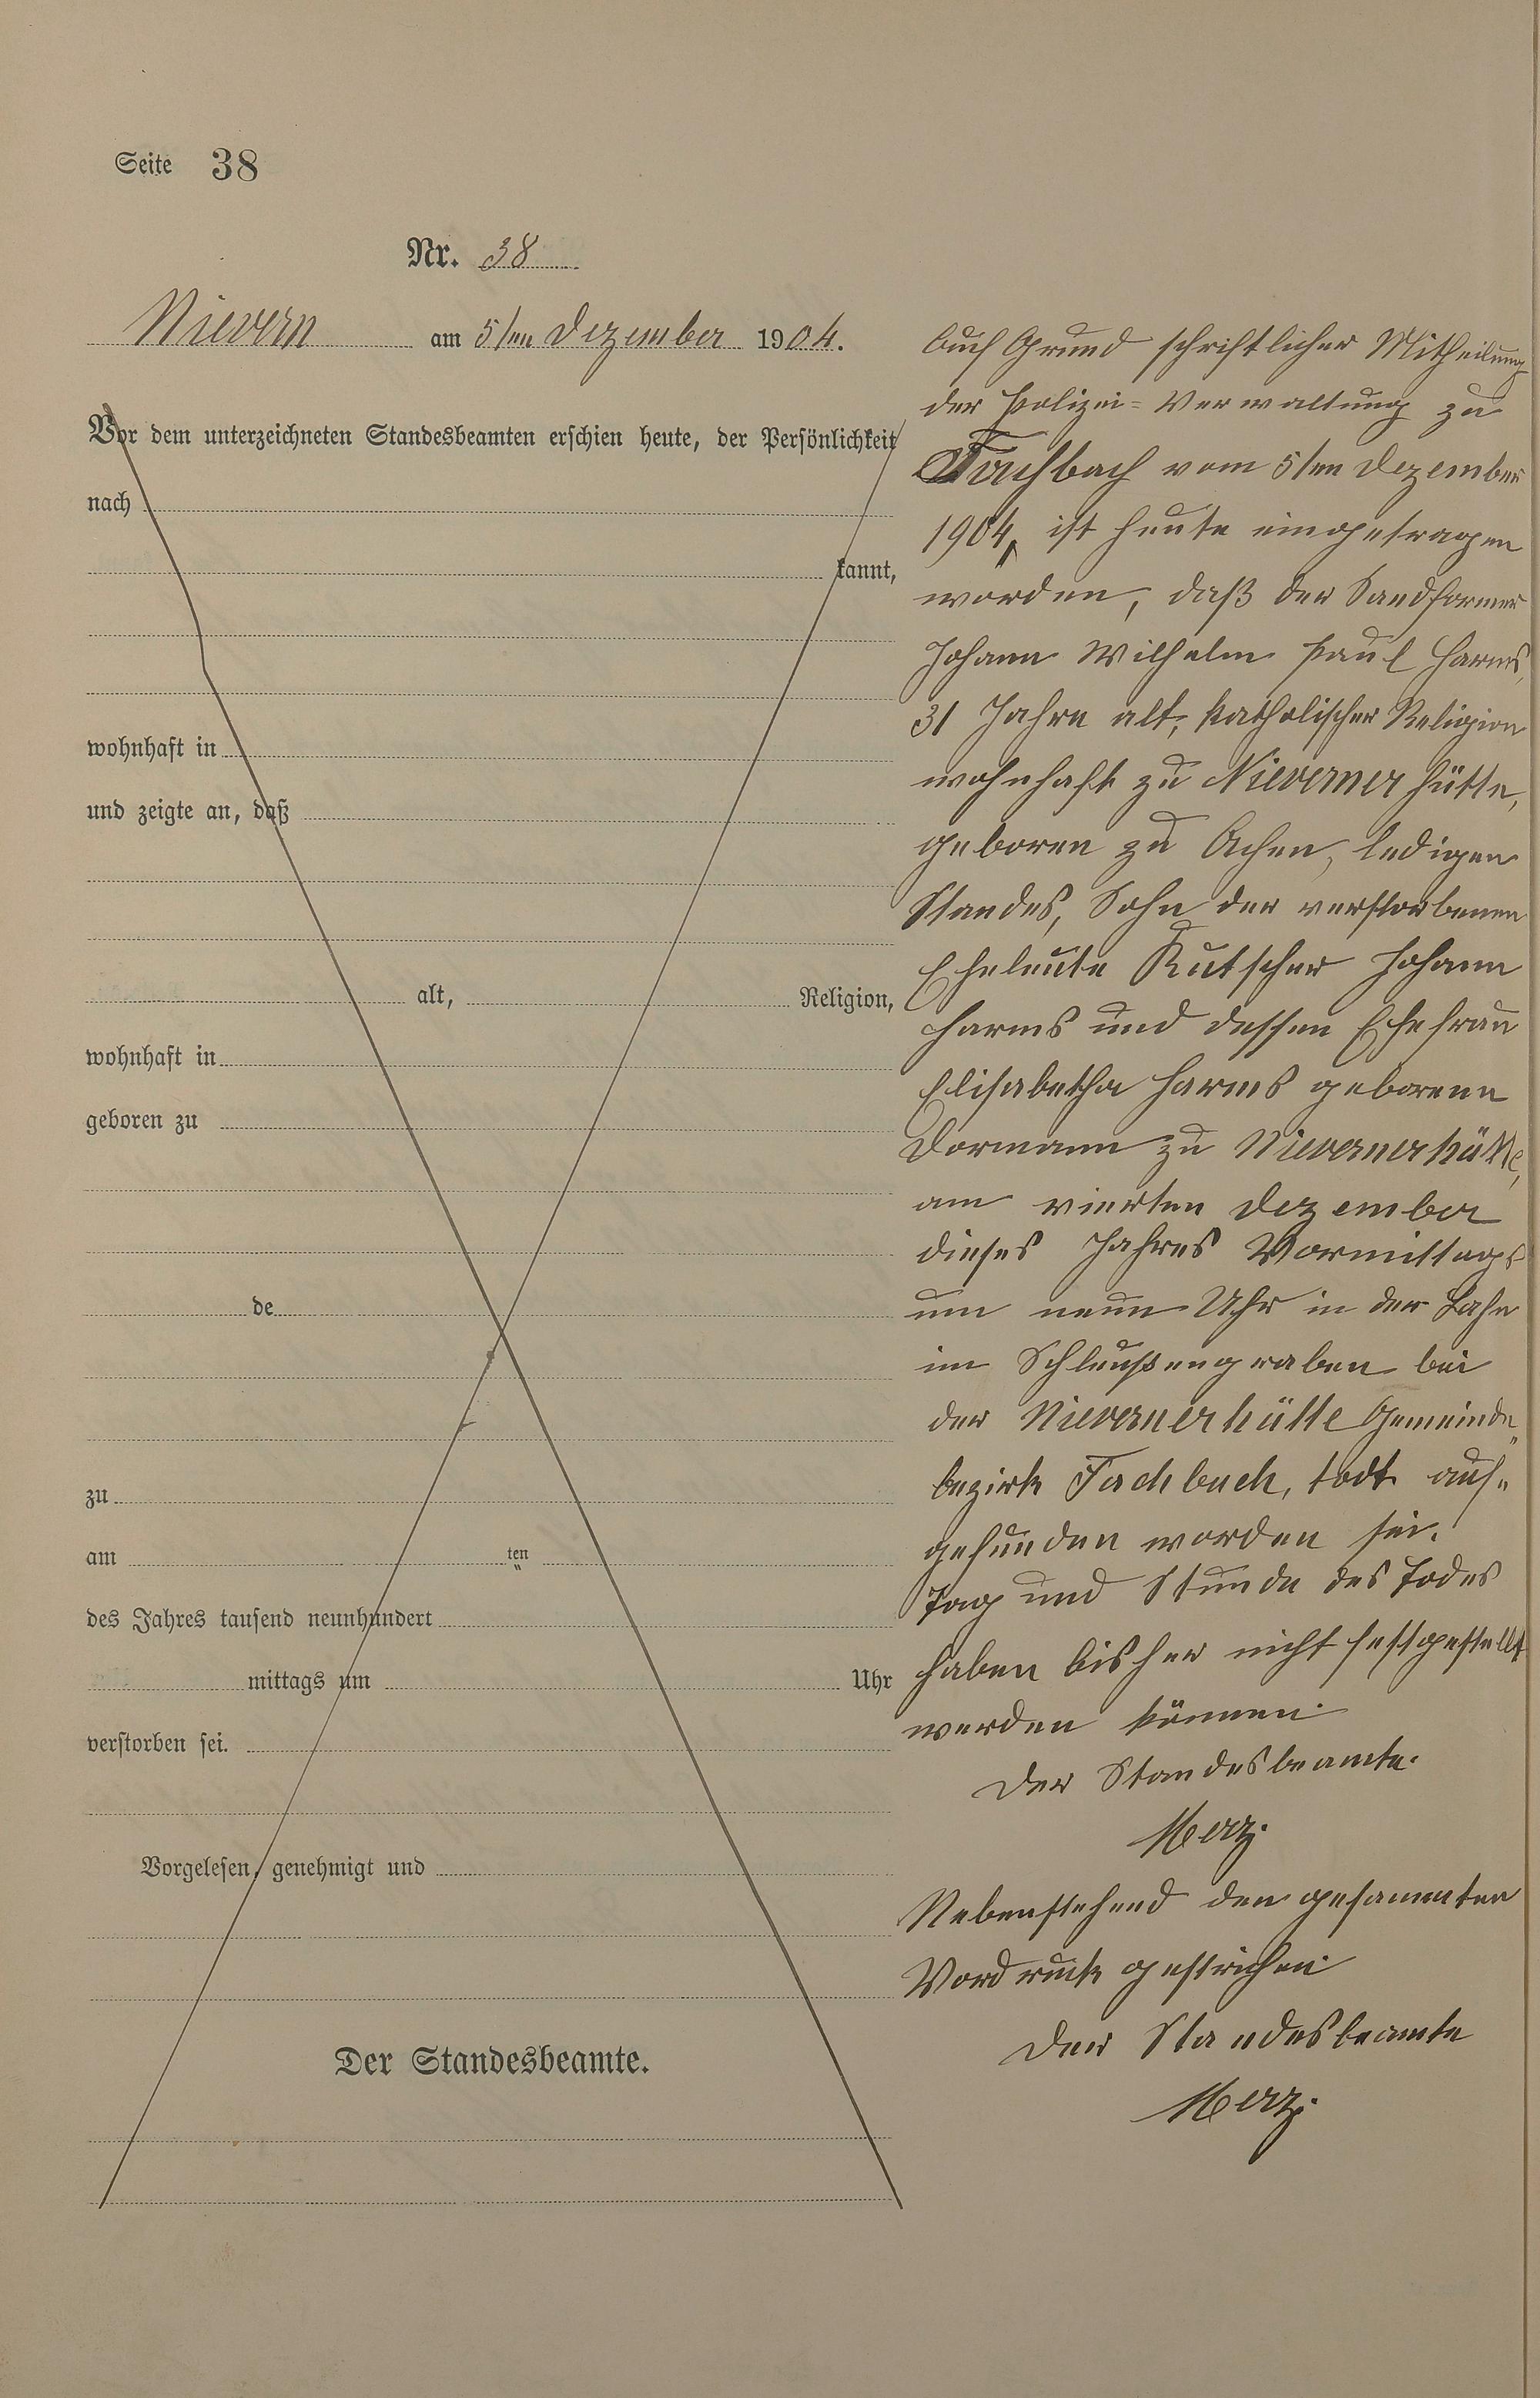 Seite 38
Nr. 38
Nievern am 5ten Dezember 1904.
Vor dem unterzeichneten Standesbeamten erschien heute, der Persönlichkeit
nach
kannt,
wohnhaft in
und zeigte an, daß
alt, Religion,
wohnhaft in
geboren zu
de
zu
am ten
des Jahres tausend neunhundert
mittags um Uhr
verstorben sei.
Vorgelesen, genehmigt und
Der Standesbeamte.
Auf Grund schriftlicher Mittheilung
der Polizei=Verwaltung zu
Fachbach vom 5ten Dezember
1904, ist heute eingetragen
worden, daß der Sandformer
Johann Wilhelm Paul Harms,
31 Jahre alt, katholischer Religion
wohnhaft zu Nievernerhütte,
geboren zu Achen, ledigen
Standes, Sohn der verstorbenen
Eheleute Kutscher Johann
Harms und dessen Ehefrau
Elisabetha Harms geborene
Dormann zu Nievernerhütte,
am vierten Dezember
dieses Jahres Vormittags
um neun Uhr in der Lahn
im Schleußengraben bei
der Nievernerhütte Gemeinde„
bezirk Fachbach, todt auf„
gefunden worden sei.
Tag und Stunde des Todes
haben bisher nicht festgestellt
werden können.
Der Standesbeamte.
Merz.
Nebenstehend den gesammten
Vordruck gestrichen.
Der Standesbeamte
Merz.